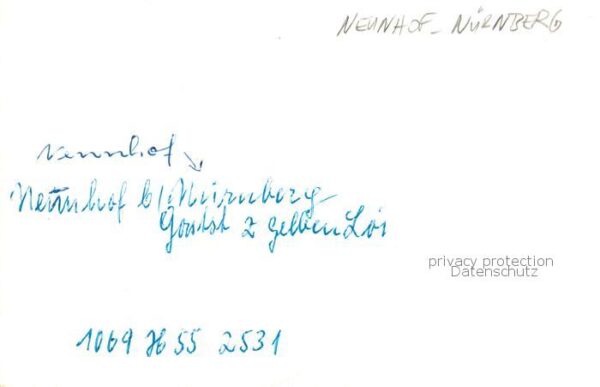 NEUNHOF - NÜRNBERG
Neunhof
Neunhof b/Nürnberg
Gastst z gelben Lö
privacy protection
Datenschutz
1069 H 55 2531